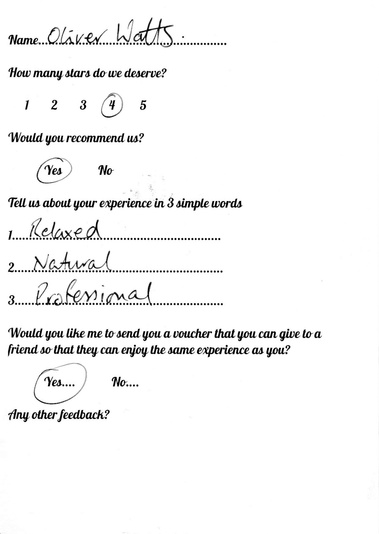 Name... Oliver Watts
How many stars do we deserve?
1 2 3 4 5
Would you recommend us?
Yes No
Tell us about your experience in 3 simple words
1.... Relaxed
2.... Natural
3.... Professional
Would you like me to send you a voucher that you can give to a
friend so that they can enjoy the same experience as you?
Yes.... No....
Any other feedback?